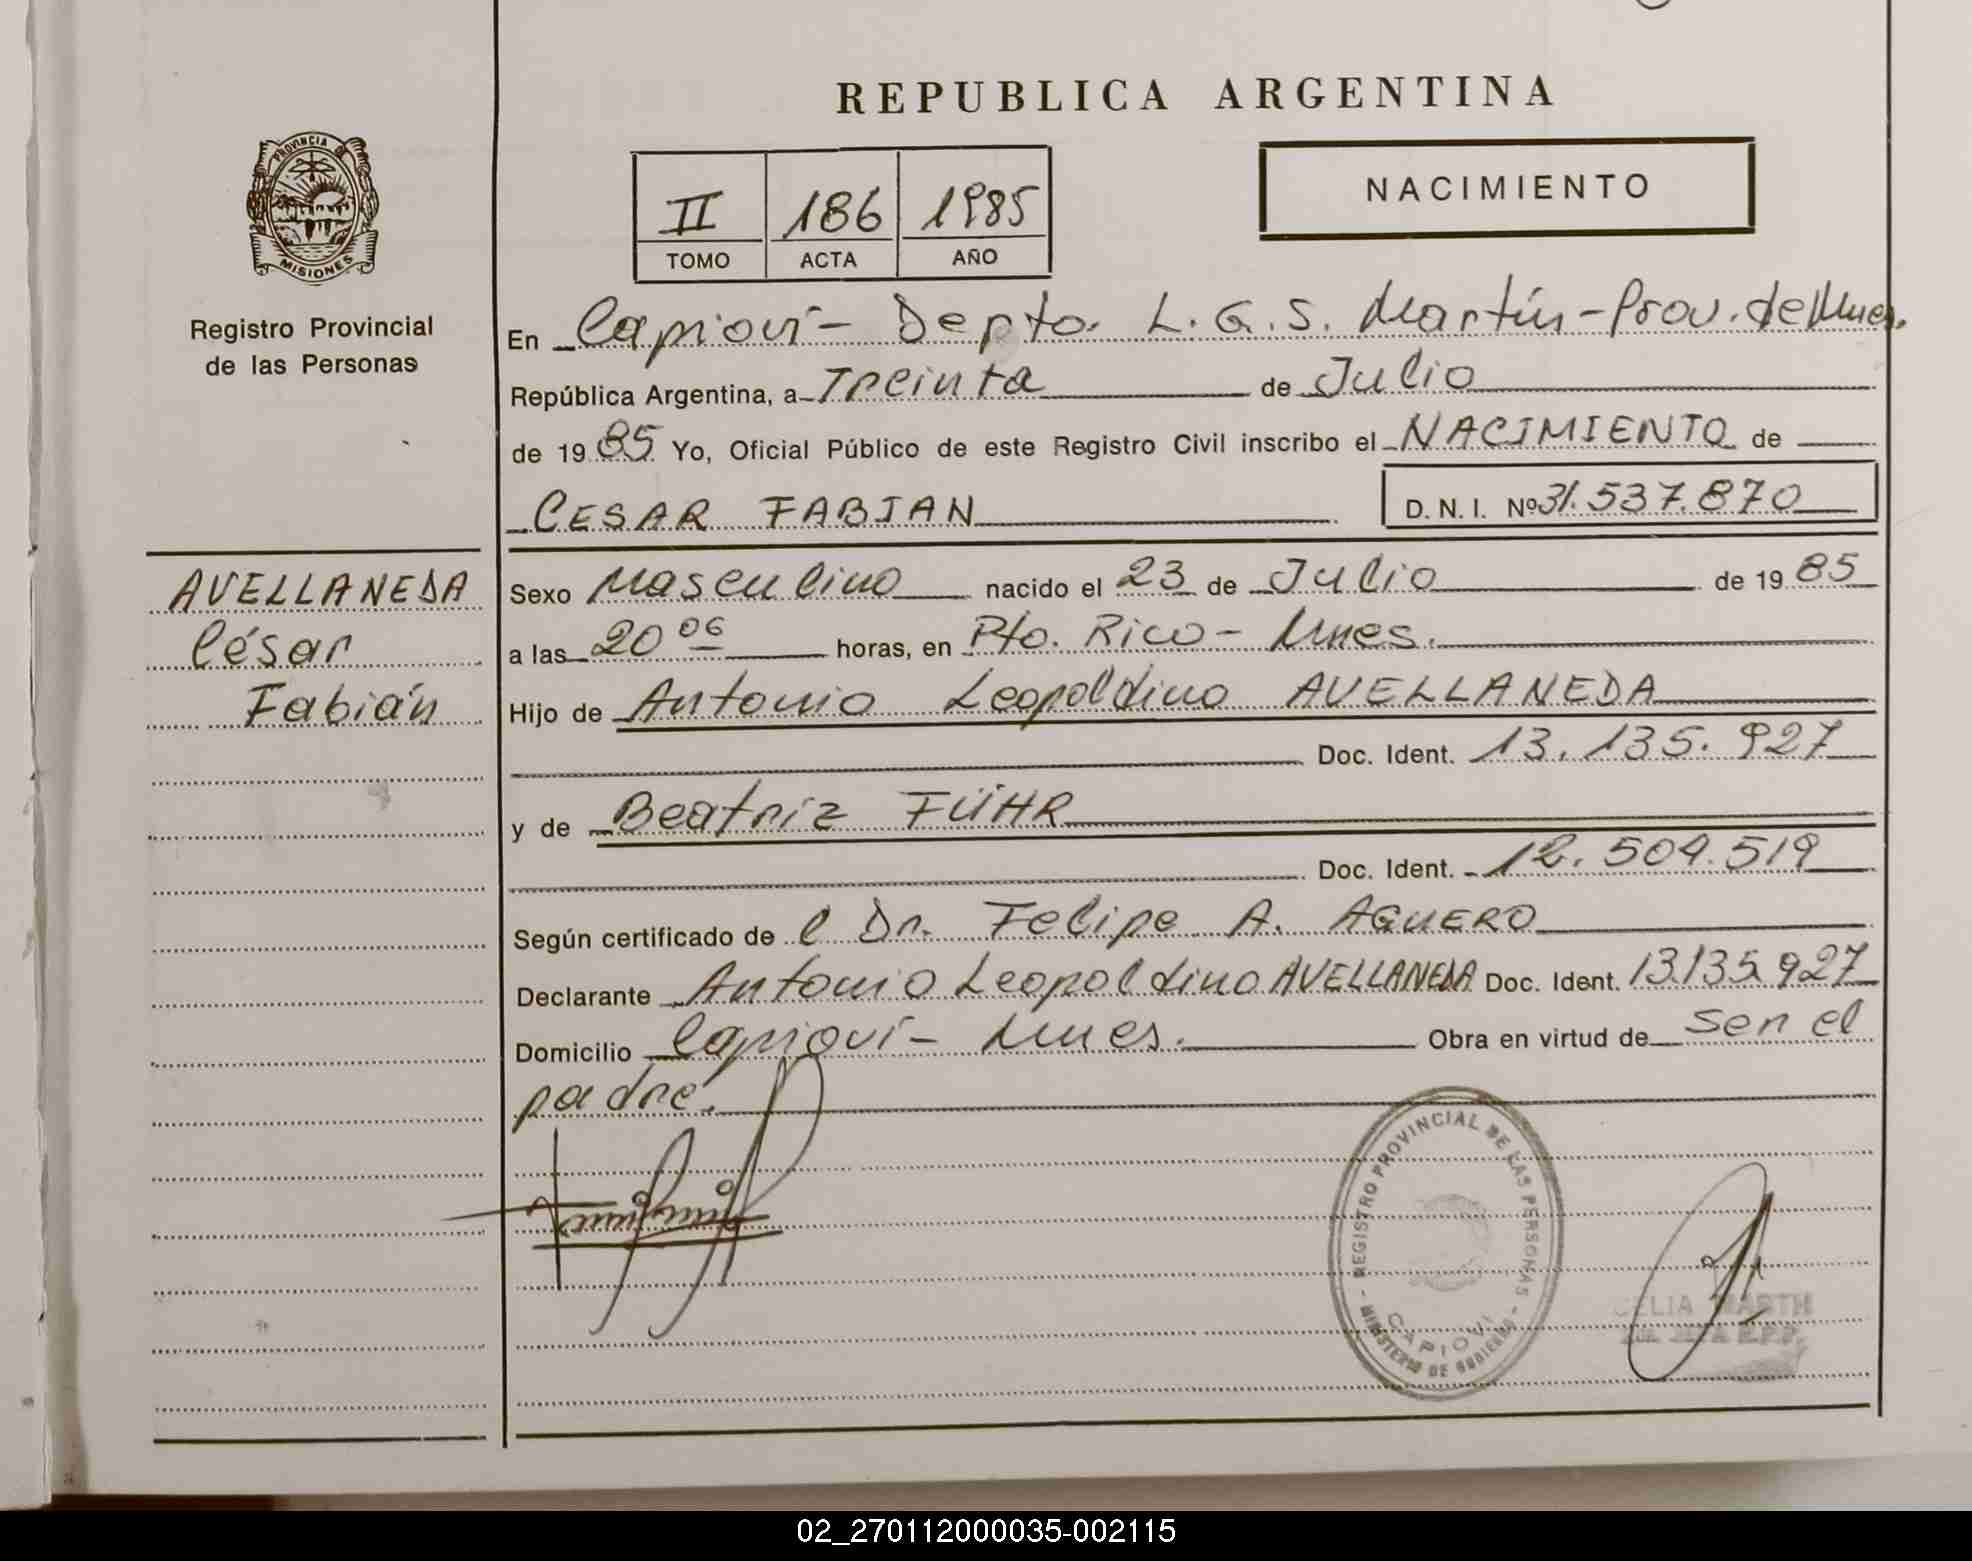 REPUBLICA ARGENTINA
PROVINCIA DE
MISIONES
Registro Provincial
de las Personas
II 186 1985
TOMO ACTA AÑO
NACIMIENTO
En Capioví - Depto. L. G. S. Martín - Prov. de Mnes.
República Argentina, a Treinta de Julio
de 1985 Yo, Oficial Público de este Registro Civil inscribo el NACIMIENTO de
CESAR FABIAN D. N. I. Nº 31.537.870
AVELLANEDA
César
Fabián
Sexo Masculino nacido el 23 de Julio de 1985
a las 20 06 horas, en Pto. Rico - Mnes.
Hijo de Antonio Leopoldino AVELLANEDA
Doc. Ident. 13.135.927
y de Beatriz FÜHR
Doc. Ident. 12.504.519
Según certificado de l Dr. Felipe A. AGUERO
Declarante Antonio Leopoldino AVELLANEDA Doc. Ident. 13.135.927
Domicilio Capioví - Mnes. Obra en virtud de ser el
padre.
REGISTRO PROVINCIAL DE LAS PERSONAS
CAPIOVI
MINISTERIO DE GOBIERNO
CELIA
02_270112000035-002115